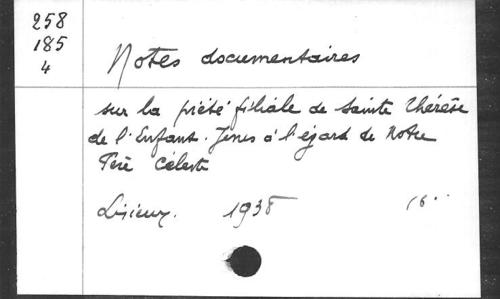 258
185
4
Notes documentaires
sur la piété filiale de Sainte Thérèse
de l'Enfant-Jésus à l'égard de Notre
Père Céleste
Lisieux. 1938 16°